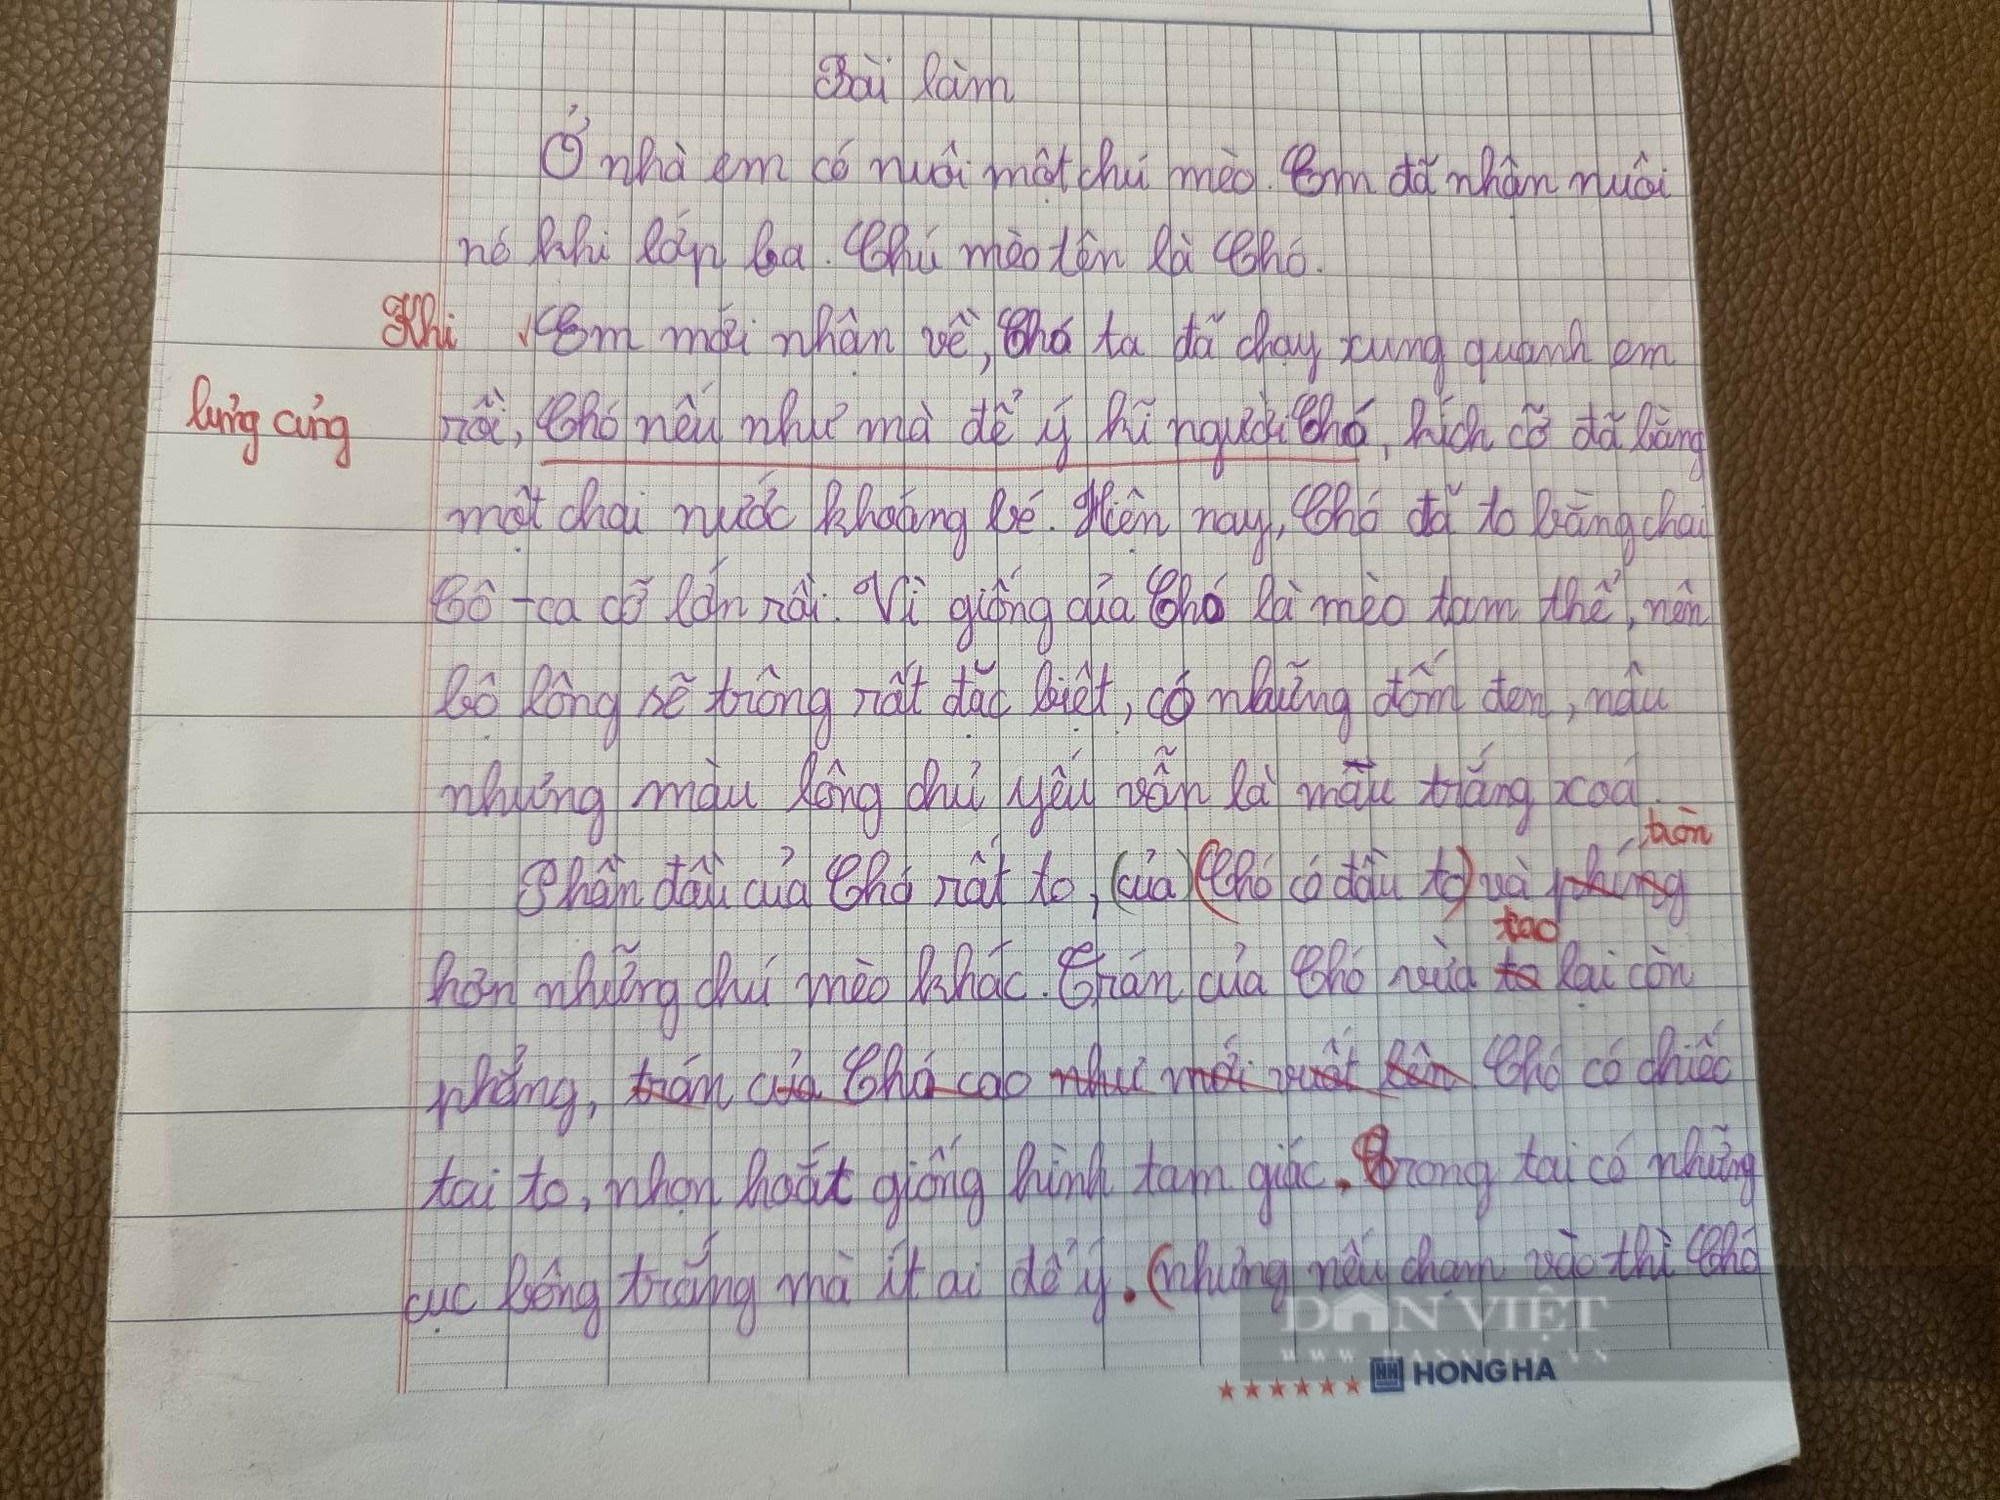 Bài làm
Ở nhà em có nuôi một chú mèo. Em đã nhận nuôi
nó khi lớp ba. Chú mèo tên là Chó.
Khi Em mới nhận về, Chó ta đã chạy xung quanh em
lủng củng rồi, Chó nếu như mà để ý kĩ người Chó, kích cỡ đã bằng
một chai nước khoáng bé. Hiện nay, Chó đã to bằng chai
Cô-ca cỡ lớn rồi. Vì giống của Chó là mèo tam thể, nên
bộ lông sẽ trông rất đặc biệt, có những đốm đen, nâu
nhưng màu lông chủ yếu vẫn là mầu trắng xoá.
tròn
Phần đầu của Chó rất to, (của) (Chó có đầu to) và phính
tao
hơn những chú mèo khác. Trán của Chó vừa to lại còn
phẳng, trán của Chó cao như mới vuốt lên Chó có chiếc
tai to, nhọn hoắt giống hình tam giác. Trong tai có những
cục bông trắng mà ít ai để ý. (nhưng nếu chạm vào thì Chó
DÂN VIỆT
WWW.DANVIET.VN
HH HONG HA